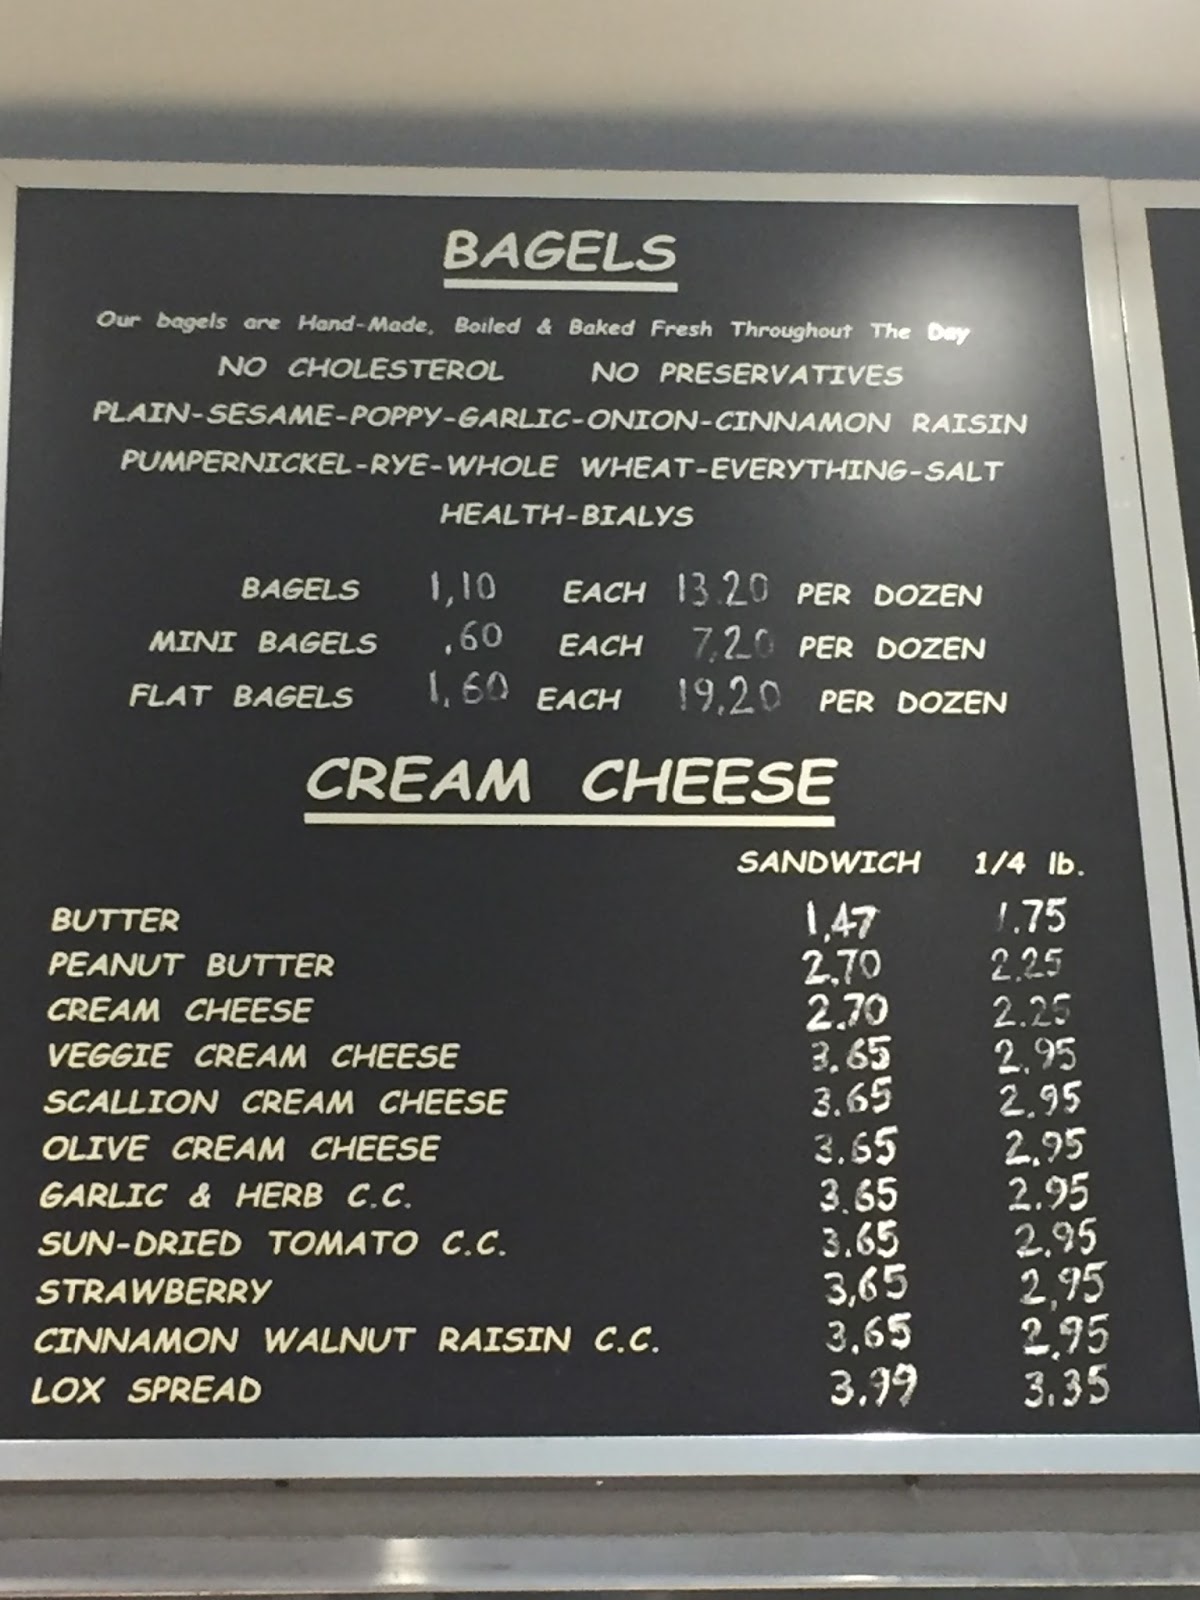 BAGELS
Our bagels are Hand-Made, Boiled & Baked Fresh Throughout The Day
NO CHOLESTEROL NO PRESERVATIVES
PLAIN-SESAME-POPPY-GARLIC-ONION-CINNAMON RAISIN
PUMPERNICKEL-RYE-WHOLE WHEAT-EVERYTHING-SALT
HEALTH-BIALYS
BAGELS 1,10 EACH 13.20 PER DOZEN
MINI BAGELS .60 EACH 7,20 PER DOZEN
FLAT BAGELS 1.60 EACH 19,20 PER DOZEN
CREAM CHEESE
SANDWICH 1/4 lb.
BUTTER 1,47 1.75
PEANUT BUTTER 2,70 2.25
CREAM CHEESE 2.70 2.25
VEGGIE CREAM CHEESE 3.65 2.95
SCALLION CREAM CHEESE 3.65 2.95
OLIVE CREAM CHEESE 3.65 2.95
GARLIC & HERB C.C. 3.65 2.95
SUN-DRIED TOMATO C.C. 3.65 2.95
STRAWBERRY 3,65 2,95
CINNAMON WALNUT RAISIN C.C. 3.65 2.95
LOX SPREAD 3.99 3.35